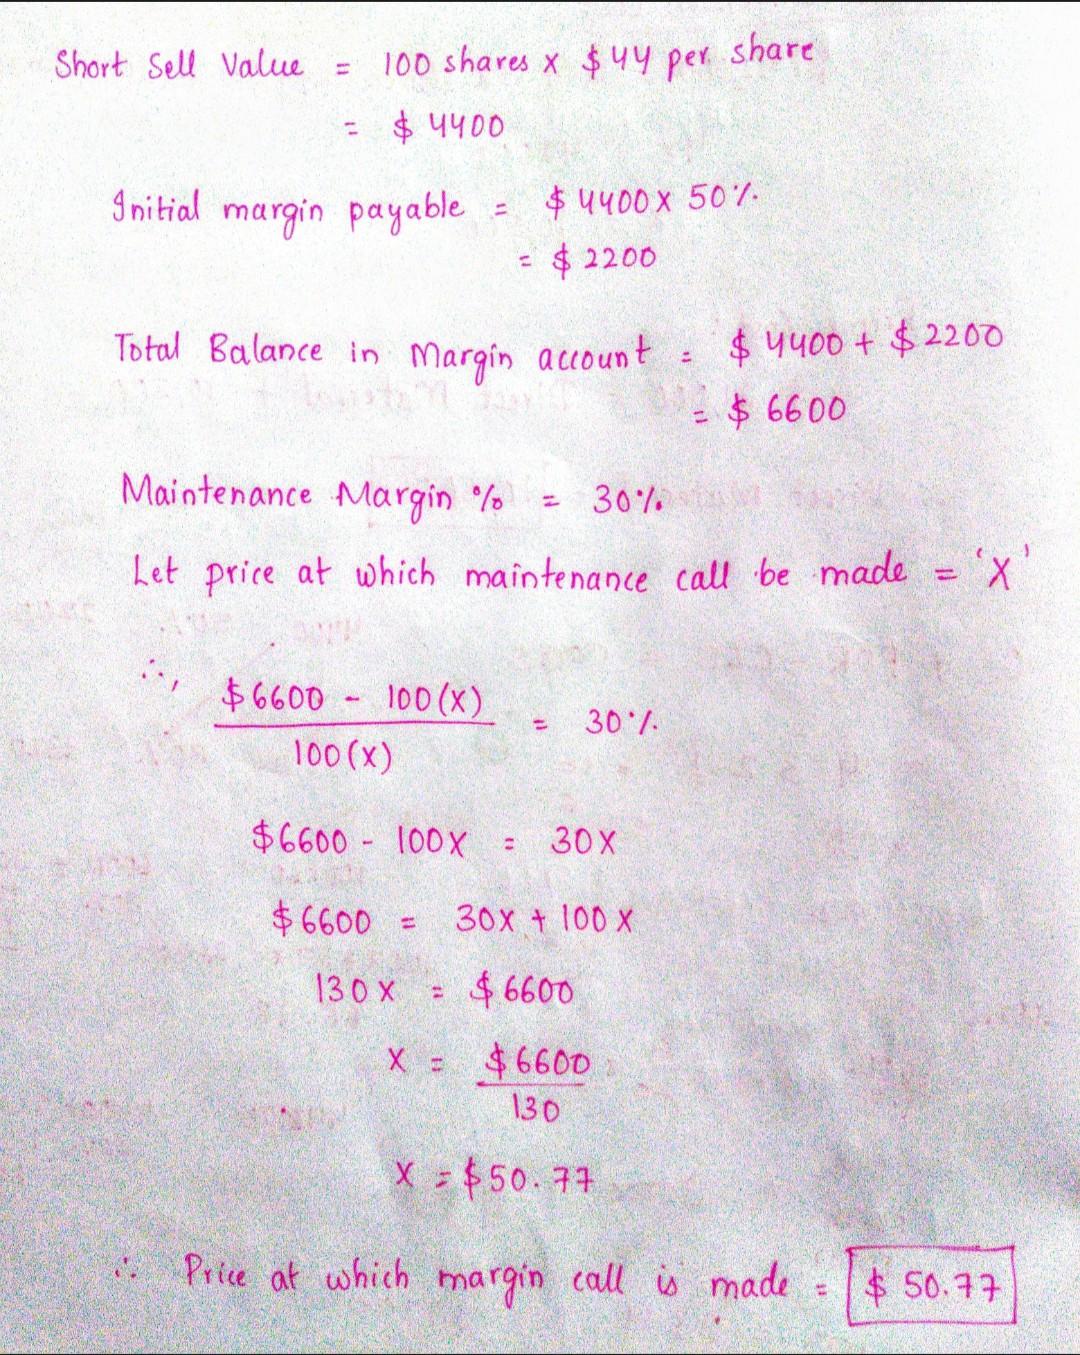 Short Sell Value = 100 shares x $44 per share
= $4400
Initial margin payable = $4400 x 50%
= $2200
Total Balance in Margin account = $4400 + $2200
= $6600
Maintenance Margin % = 30%
Let price at which maintenance call be made = 'X'
∴, $6600 - 100(x)
100(x)
= 30%
$6600 - 100x = 30x
$6600 = 30x + 100x
130x = $6600
x = $6600
130
x = $50.77
∴ Price at which margin call is made = $50.77